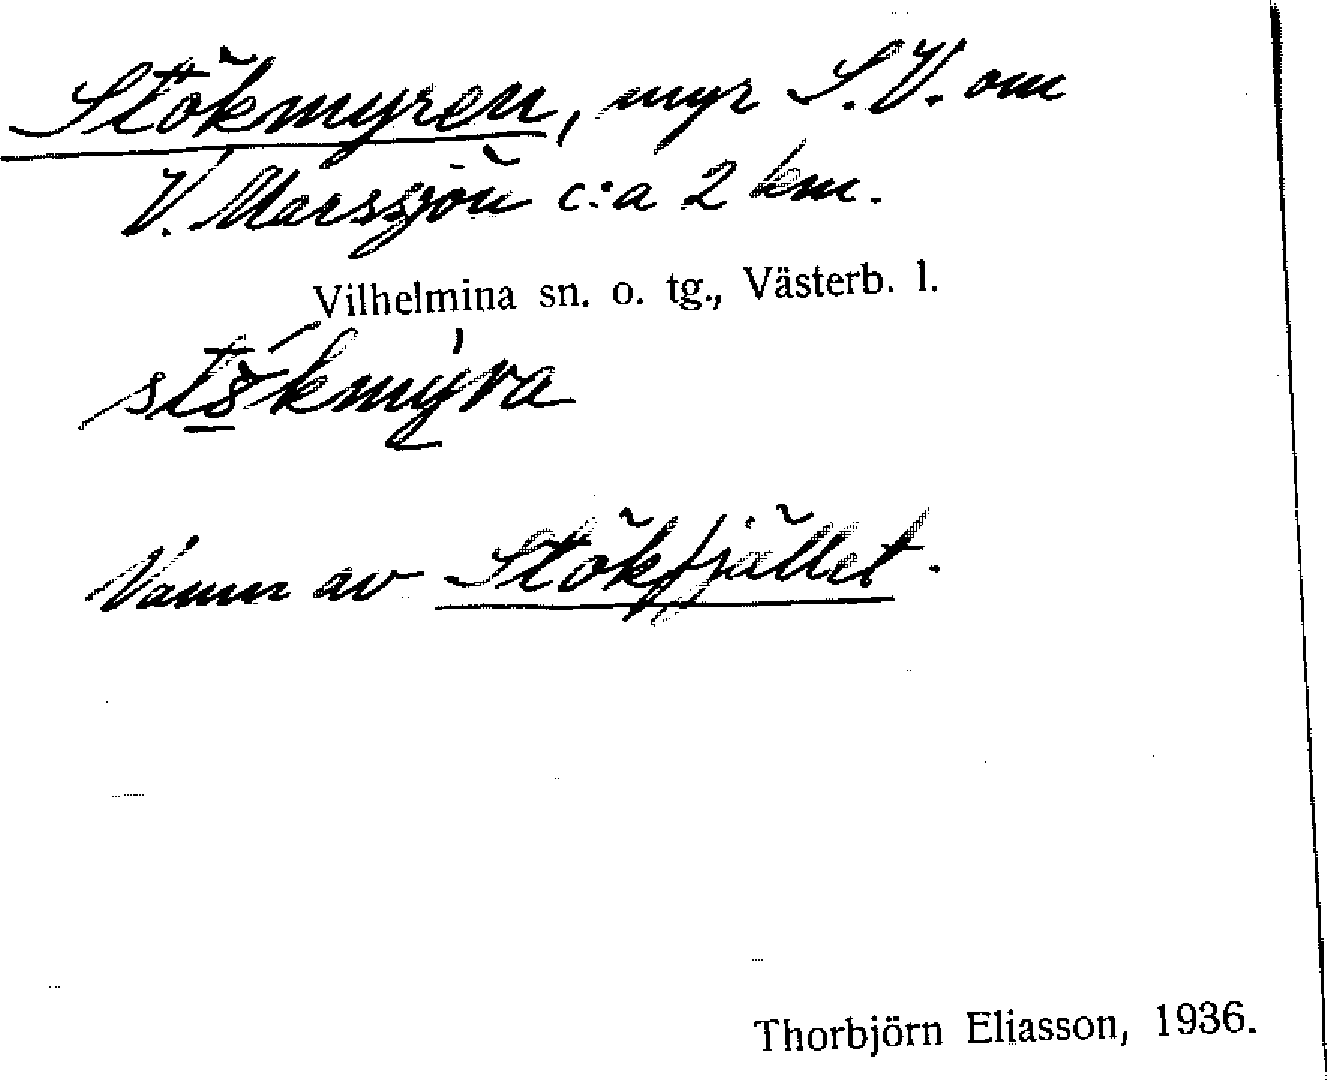 Stökmyren, myr S.V. om
V. Marssjön c:a 2 km.
Vilhelmina sn. o. tg., Västerb. l.
Namn av Stökfjället.
Thorbjörn Eliasson, 1936.